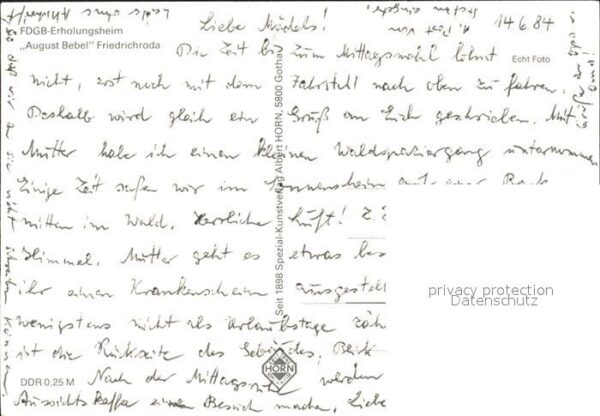 FDGB-Erholungsheim
„August Bebel" Friedrichroda
Echt Foto
14.6.84
Liebe Mädels!
Die Zeit bis zum Mittagsmahl lohnt
nicht, erst noch mit dem Fahrstuhl nach oben zu fahren.
Deshalb wird gleich ein Gruß an Euch geschrieben. Mit
Mutter habe ich einen kleinen Waldspaziergang unternommen.
Einige Zeit saßen wir im Sonnenschein auf einer Bank
mitten im Wald. Herrliche Luft! Z. Z.
Himmel. Mutter geht es etwas bes
ihr einen Krankenschein ausgestell
wenigstens nicht als Urlaubstage zäh
ist die Rückseite des Gebäudes, Blick
Nach der Mittagsruhe werden
Aussichts einen Besuch machen. Liebe
so daß wir sie nicht schreiben können.
Seit 1898 Spezial-Kunstverlag Albert HORN, 5800 Gotha
HORN
DDR 0,25 M
privacy protection
Datenschutz